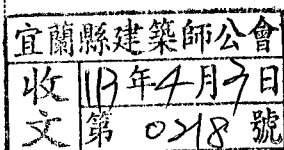 宜蘭縣建築師公會
收文 113年4月3日
第 0218 號